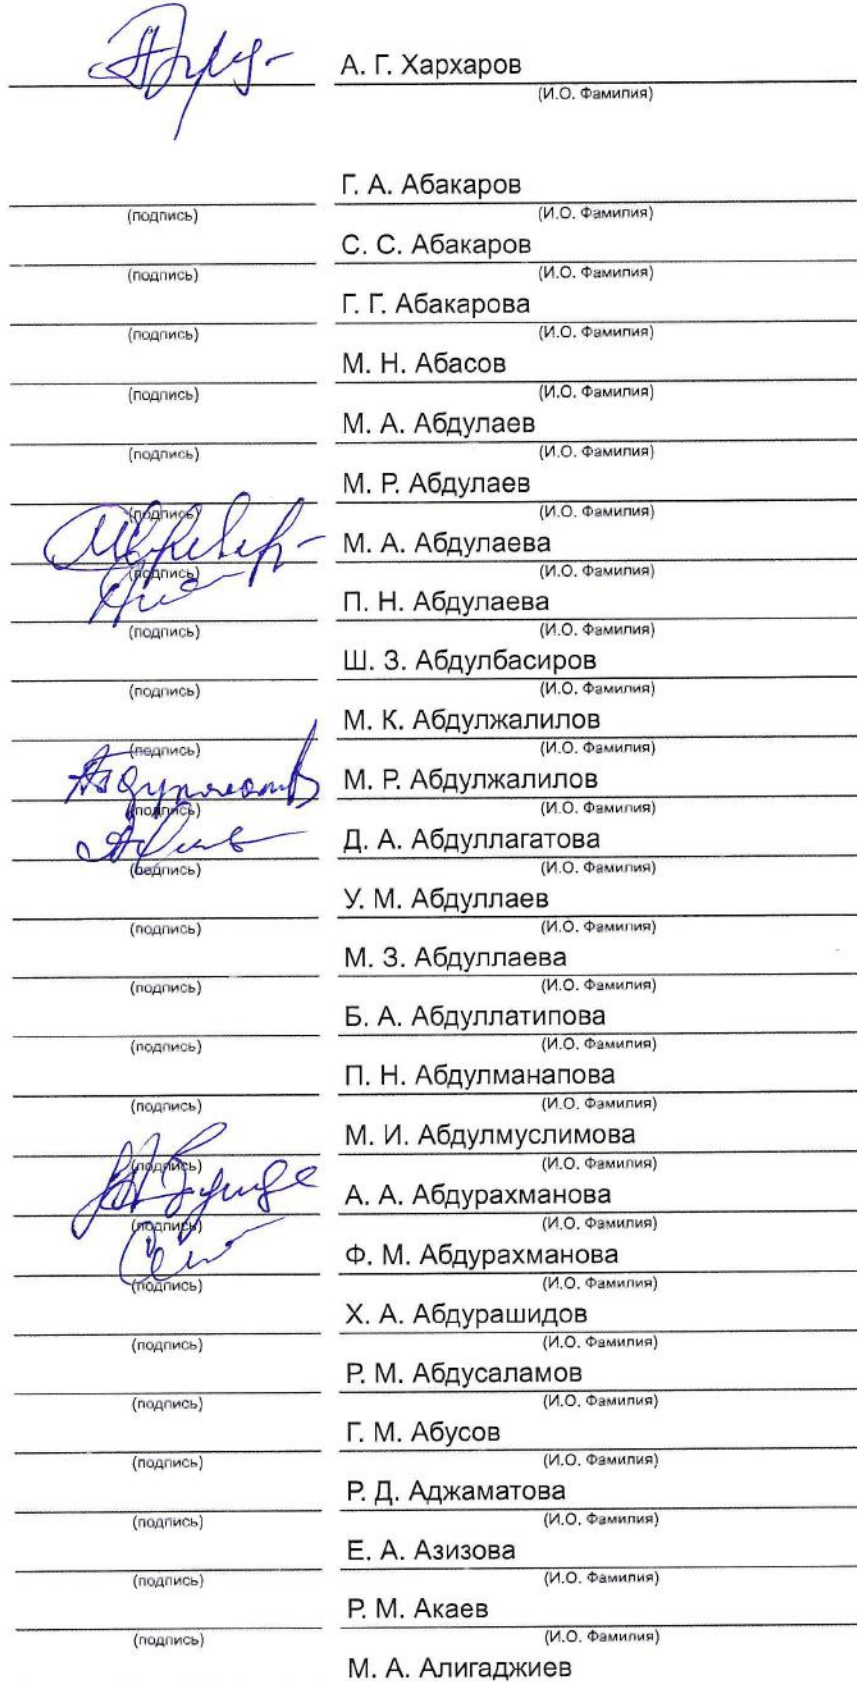 А. Г. Хархаров
(И.О. Фамилия)
Г. А. Абакаров
(подпись) (И.О. Фамилия)
С. С. Абакаров
(подпись) (И.О. Фамилия)
Г. Г. Абакарова
(подпись) (И.О. Фамилия)
М. Н. Абасов
(подпись) (И.О. Фамилия)
М. А. Абдулаев
(подпись) (И.О. Фамилия)
М. Р. Абдулаев
(подпись) (И.О. Фамилия)
М. А. Абдулаева
(подпись) (И.О. Фамилия)
П. Н. Абдулаева
(подпись) (И.О. Фамилия)
Ш. З. Абдулбасиров
(подпись) (И.О. Фамилия)
М. К. Абдулжалилов
(подпись) (И.О. Фамилия)
М. Р. Абдулжалилов
(подпись) (И.О. Фамилия)
Д. А. Абдуллагатова
(подпись) (И.О. Фамилия)
У. М. Абдуллаев
(подпись) (И.О. Фамилия)
М. З. Абдуллаева
(подпись) (И.О. Фамилия)
Б. А. Абдуллатипова
(подпись) (И.О. Фамилия)
П. Н. Абдулманапова
(подпись) (И.О. Фамилия)
М. И. Абдулмуслимова
(подпись) (И.О. Фамилия)
А. А. Абдурахманова
(подпись) (И.О. Фамилия)
Ф. М. Абдурахманова
(подпись) (И.О. Фамилия)
Х. А. Абдурашидов
(подпись) (И.О. Фамилия)
Р. М. Абдусаламов
(подпись) (И.О. Фамилия)
Г. М. Абусов
(подпись) (И.О. Фамилия)
Р. Д. Аджаматова
(подпись) (И.О. Фамилия)
Е. А. Азизова
(подпись) (И.О. Фамилия)
Р. М. Акаев
(подпись) (И.О. Фамилия)
М. А. Алигаджиев